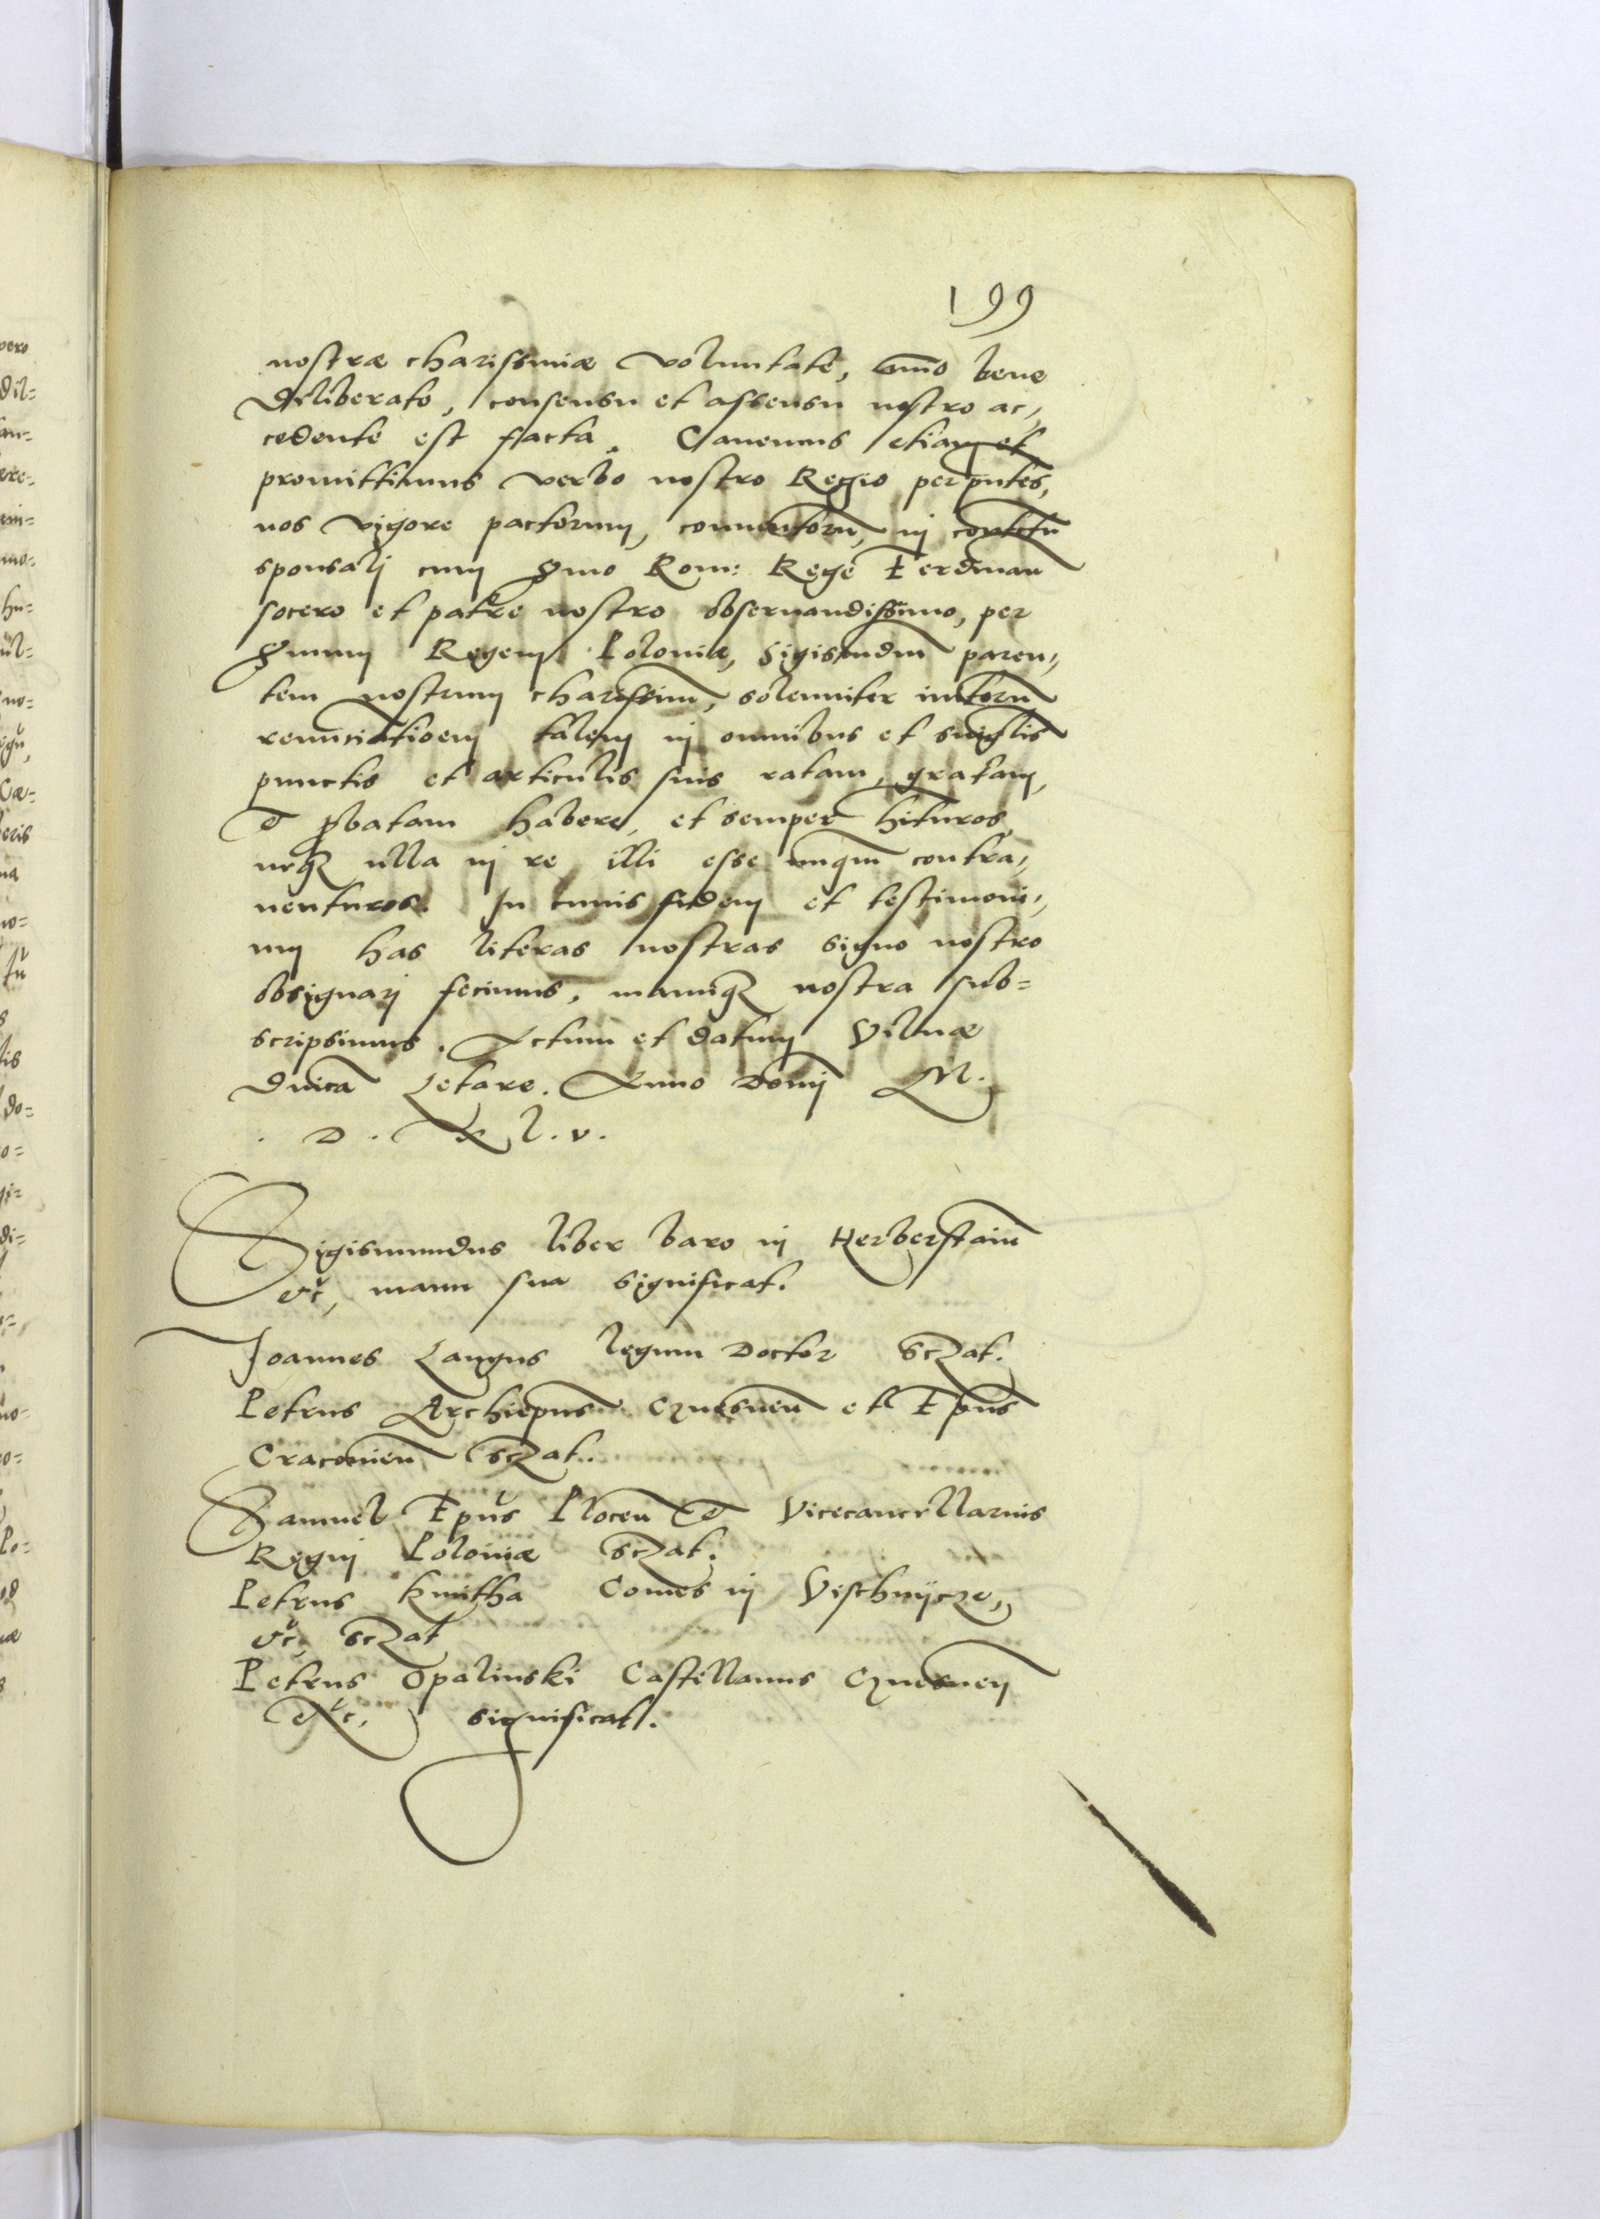 199
nostræ charissimæ voluntate, aĩo bene
deliberato, consensu et assensu nostro ac,,
cedente est facta. Cavemus etiam et
promittimus verbo nostro Regio per pñtes,
nos vigore pactorum, conventorũ, in
sponsalj cum Smo Rom: Rege Ferdinan
socero et patre nostro observandissimo, per
Smum Regem Poloniæ, Sigismdm paren,,
tem nostrum charissim, solenniter initorũ
renuntiatioem talem in omnibus et singlis
punctis et articulis suis ratam, gratam,
& pbatam habere, et semper hituros,
neqꝫ ulla in re illi esse unqm contra,,
venturos. In cuius fidem et testimoni,,
um has literas nostras signo nostro
obsignarj fecimus, manuqꝫ nostra sub=
scripsimus. Actum et datum Vilnæ
Dnica Letare. Anno Domj M.
. D. X l. v.
Sigismundus liber baro in Herberstain
&c, manu sua significat.
Joannes Langus legum Doctor sczat.
Petrus Archiepus Gnesnen et Epus
Cracovien sczat.
Samuel Epus Plocen & Vicecancellarius
Regnj Poloniæ sczat.
Petrus Kmitha Comes in Vischnijcze,,
&c, sczat
Petrus Opalinski Castellanus Gnesnen
&c, significat.
vero
dil=
an=
ere=
mo=
hu=
no=
Cæ=
eris
na
no=
tũ
lis
do=
o=
gi=
di=
no=
ro=
Po=